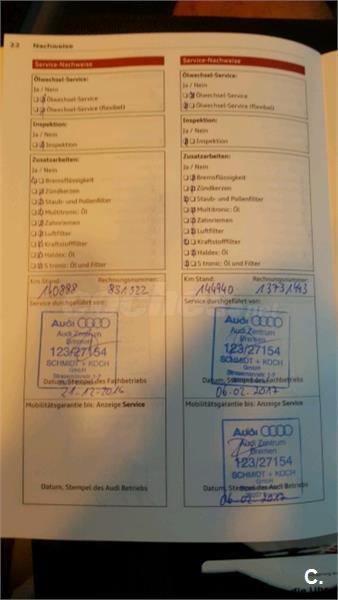 22 Nachweise
Service-Nachweise
Ölwechsel-Service:
Ja / Nein
Ölwechsel-Service
Ölwechsel-Service (flexibel)
Inspektion:
Ja / Nein
Inspektion
Zusatzarbeiten:
Ja / Nein
Bremsflüssigkeit
Zündkerzen
Staub- und Pollenfilter
Multitronic: Öl
Zahnriemen
Luftfilter
Kraftstofffilter
Haldex: Öl
S tronic: Öl und Filter
Km Stand: Rechnungsnummer:
140888 931322
Service durchgeführt von:
Audi
Audi Zentrum
Bremen
123/27154
SCHMIDT + KOCH
GmbH
Datum, Stempel des Fachbetriebs
21-12-2016
Mobilitätsgarantie bis: Anzeige Service
Datum, Stempel des Audi Betriebs
Service-Nachweise
Ölwechsel-Service:
Ja / Nein
Ölwechsel-Service
Ölwechsel-Service (flexibel)
Inspektion:
Ja / Nein
Inspektion
Zusatzarbeiten:
Ja / Nein
Bremsflüssigkeit
Zündkerzen
Staub- und Pollenfilter
Multitronic: Öl
Zahnriemen
Luftfilter
Kraftstofffilter
Haldex: Öl
S tronic: Öl und Filter
Km Stand: Rechnungsnummer:
144940 13731443
Service durchgeführt von:
Audi
Audi Zentrum
Bremen
123/27154
SCHMIDT + KOCH
GmbH
Datum, Stempel des Fachbetriebs
06-02-2017
Mobilitätsgarantie bis: Anzeige Service
Audi
Audi Zentrum
Bremen
123/27154
SCHMIDT + KOCH
GmbH
Datum, Stempel des Audi Betriebs
06-02-2017
C.